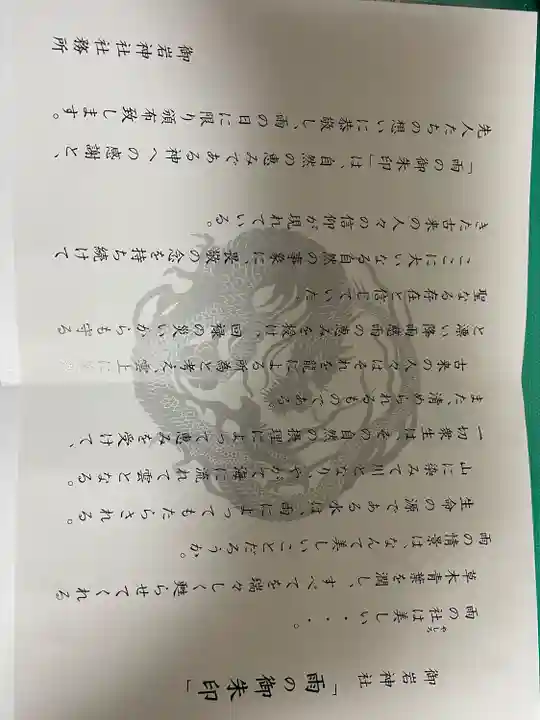 御岩神社
「雨の御朱印」
雨の社は美しい・・・。
やしろ
草木青葉を潤し、すべてを瑞々しく甦らせてくれる
雨の情景は、なんて美しいことだろうか。
生命の源である水は、雨によってもたらされる。
山に染みて川となり、やがて海に流れて雲となる。
一切衆生は、その自然の摂理によって恵みを受けて、
また、清められるものである。
古来の人々はそれを龍による所為と考え、雲上に
と漂い降雨慈雨の恵みを授け、回禄の災いからも守る
聖なる存在と信じていた。
ここに大いなる自然の事象に、畏敬の念を持ち続けて
きた古来の人々の信仰が現れている。
「雨の御朱印」は、自然の恵みである神への感謝と、
先人たちの想いに恭敬し、雨の日に限り頒布致します。
御岩神社社務所